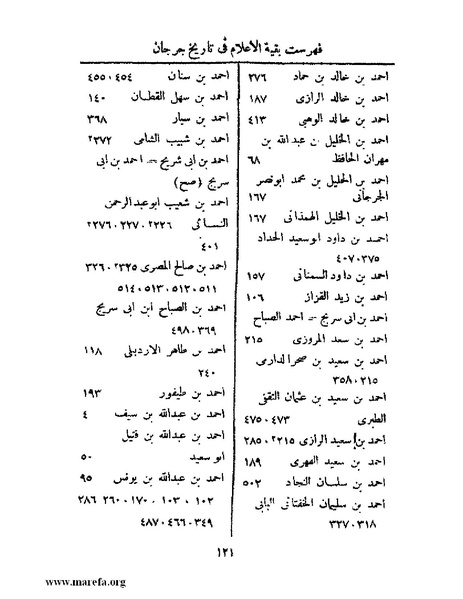 فهرست بقية الاعلام فى تاريخ جرجان
احمد بن خالد بن حماد ٢٧٦
احمد بن خالد الرازى ١٨٧
احمد بن خالد الوهبى ٤١٣
احمد بن الخليل بن عبدالله بن
مهران الحافظ ٦٨
احمد بن الخليل بن محمد ابونصر
الجرجانى ١٦٧
احمد بن الخليل الهمذانى ١٦٧
احمد بن داود ابوسعيد الحداد
٣٧٥، ٤٠٧
احمد بن داود السمنانى ١٥٧
احمد بن زيد القزاز ١٠٦
احمد بن ابى سريج = احمد الصباح
احمد بن سعد المروزى ٢١٥
احمد بن سعيد بن صخر الدارمى
٢١٥، ٣٥٨
احمد بن سعيد بن عثمان الثقفى
الطبرى ٤٧٣، ٤٧٥
احمد بن سعيد الرازى ٢٢١٥، ٢٨٥
احمد بن سعيد الفهرى ١٨٩
احمد بن سلمان النجاد ٥٠٢
احمد بن سليمان الخفتانى البابى
٣١٨، ٣٢٧
احمد بن سنان ٤٥٤، ٤٥٥
احمد بن سهل القطان ١٤٠
احمد بن سيار ٣٦٨
احمد بن شبيب الشامى ٢٣٧٢
احمد بن ابى شريح = احمد بن ابى
سريج (صح)
احمد بن شعيب ابوعبدالرحمن
النسائى ٢٢٢٦، ٢٢٧، ٢٢٧٦
٤٠١
احمد بن صالح المصرى ٢٣٢٥، ٣٢٦
٥١١، ٥١٢، ٥١٣، ٥١٤
احمد بن الصباح ابن ابى سريج
٣٦٩، ٤٩٨
احمد بن طاهر الاردبيلى ١١٨
٢٤٠
احمد بن طيفور ١٩٣
احمد بن عبدالله بن سيف ٤
احمد بن عبدالله بن
ابو سعيد ٥٠
احمد بن عبدالله بن يونس ٩٥
١٠٢، ١٠٣، ١٧٠، ٢٦٠، ٢٨٦
٣٤٩، ٤٦٦، ٤٨٧
١٢١
www.marefa.org